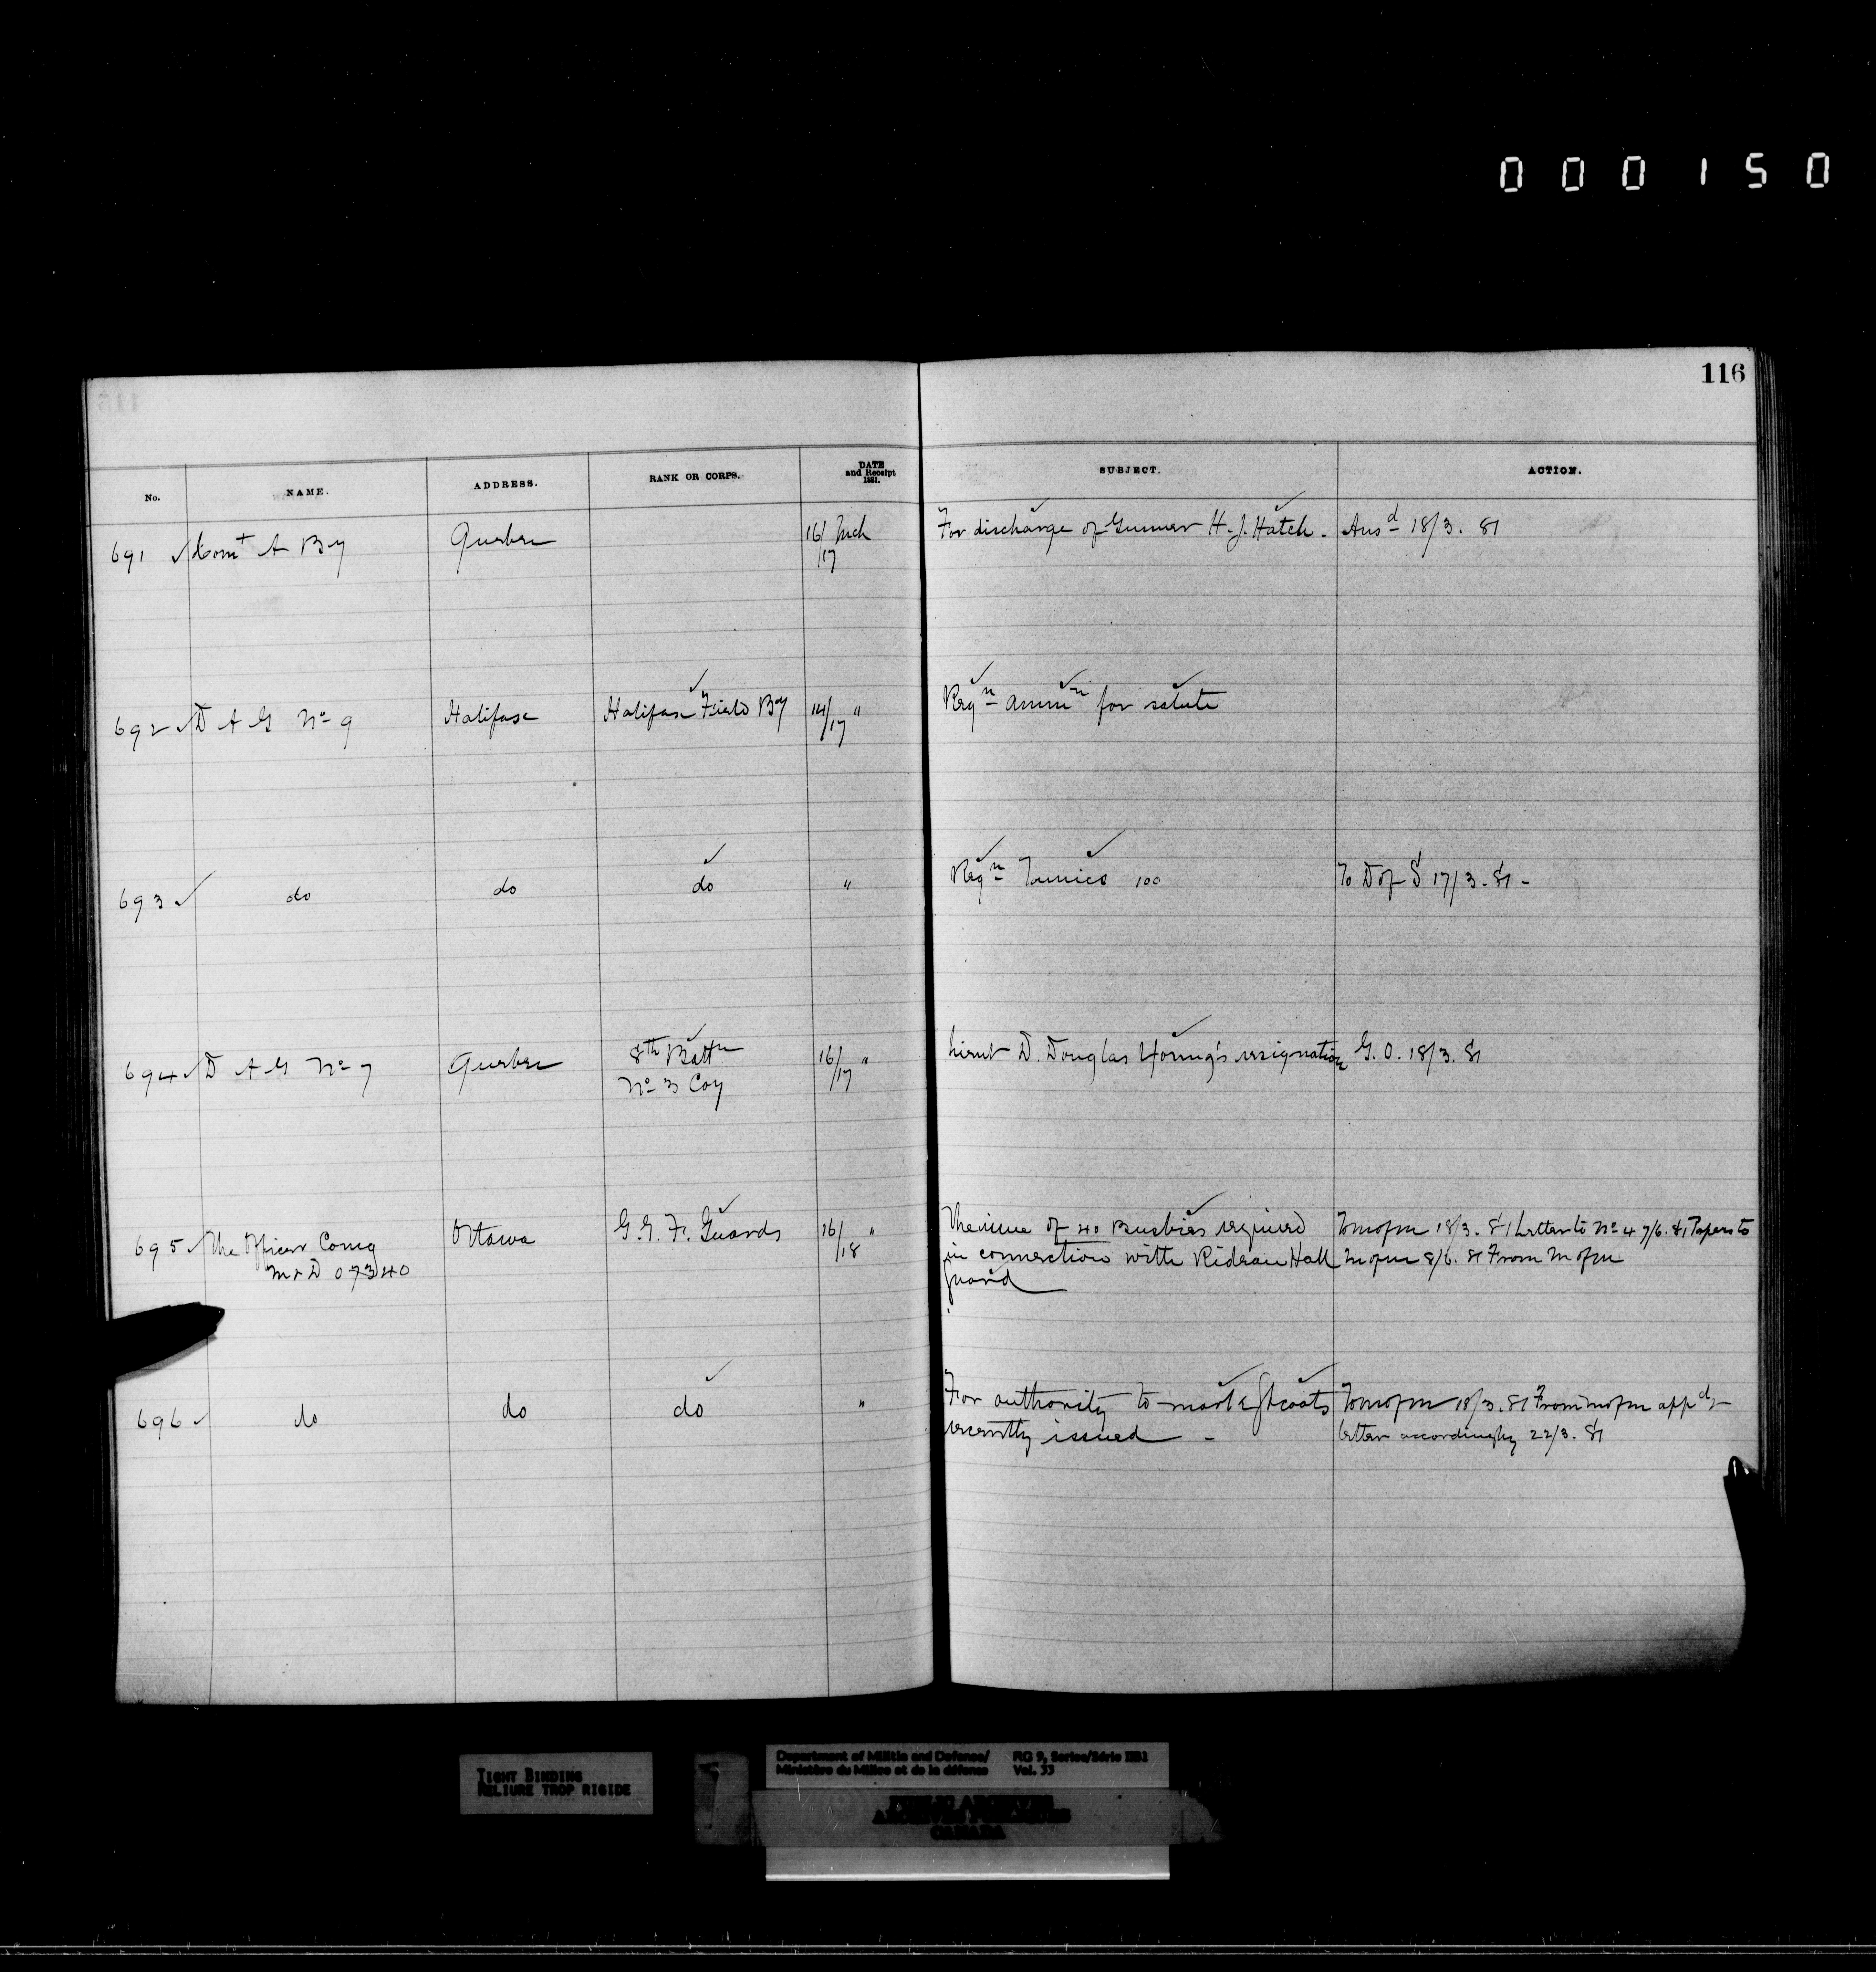 000150
116
No. NAME. ADDRESS. RANK OR CORPS. DATE and Receipt 1881. SUBJECT. ACTION.
691 ✓ Comt A By Quebec 16/17 Mch For discharge of Gunner H. J. Hatch. Ansd 18/3. 81
692 ✓ D A G No 9 Halifax Halifax Field By 14/17 " Reqn ammn for salute
693 ✓ do do do " Reqn Tunics 100 To D of S 17/3. 81 -
694 ✓ D A G No 7 Quebec 8th Battn 16/17 " Lieut D. Douglas Young's resignation G. O. 18/3. 81
No 3 Coy
695 ✓ The Officer Comg Ottawa G. G. F. Guards 16/18 " The issue of 40 Busbies required To M of M 18/3. 81 Letter to No 4 7/6. 81 Papers to
M & D 07340 in connection with Rideau Hall M of M 8/6. 81 From M of M
guard
696 ✓ do do do " For authority to mark Gt coats To M of M 18/3. 81 From M of M appd
recently issued - letter accordingly 22/3. 81
TIGHT BINDING
RELIURE TROP RIGIDE
Department of Militia and Defence/ RG 9, Series/Série IIB1
Ministère du Milice et de la défense Vol. 33
PUBLIC ARCHIVES
ARCHIVES PUBLIQUES
CANADA